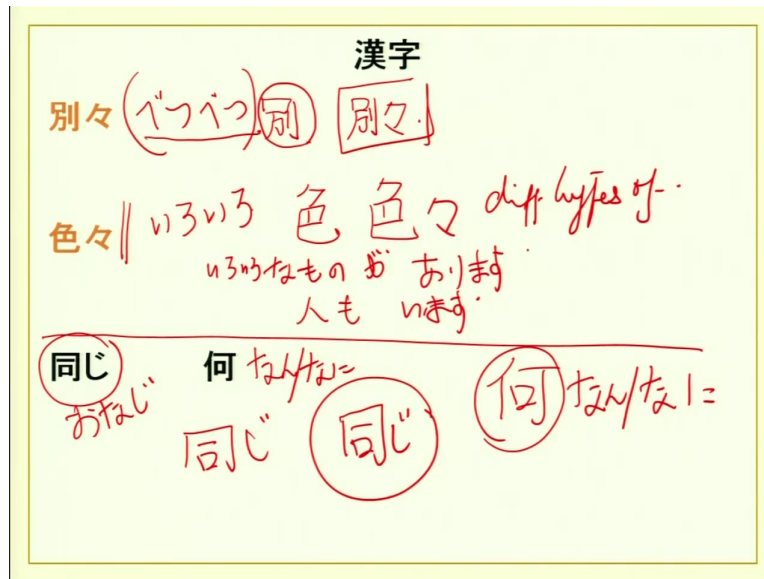 漢字
別々 (べつべつ) 別 別々
色々 いろいろ 色 色々 diff types of..
いろいろなものが あります
人も います
同じ 何 なん/なに 何 なん/なに
おなじ 同じ 同じ